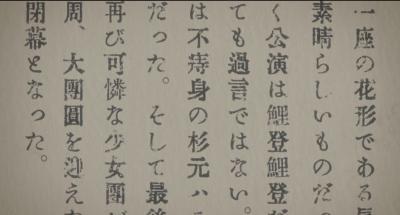 一座の花形である
素晴らしいものだ
く公演は鯉登鯉登
ても過言ではない。
は不痔身の杉元ハ
だった。そして最後
再び可憐な少女團
周、大團圓を迎え
閉幕となった。